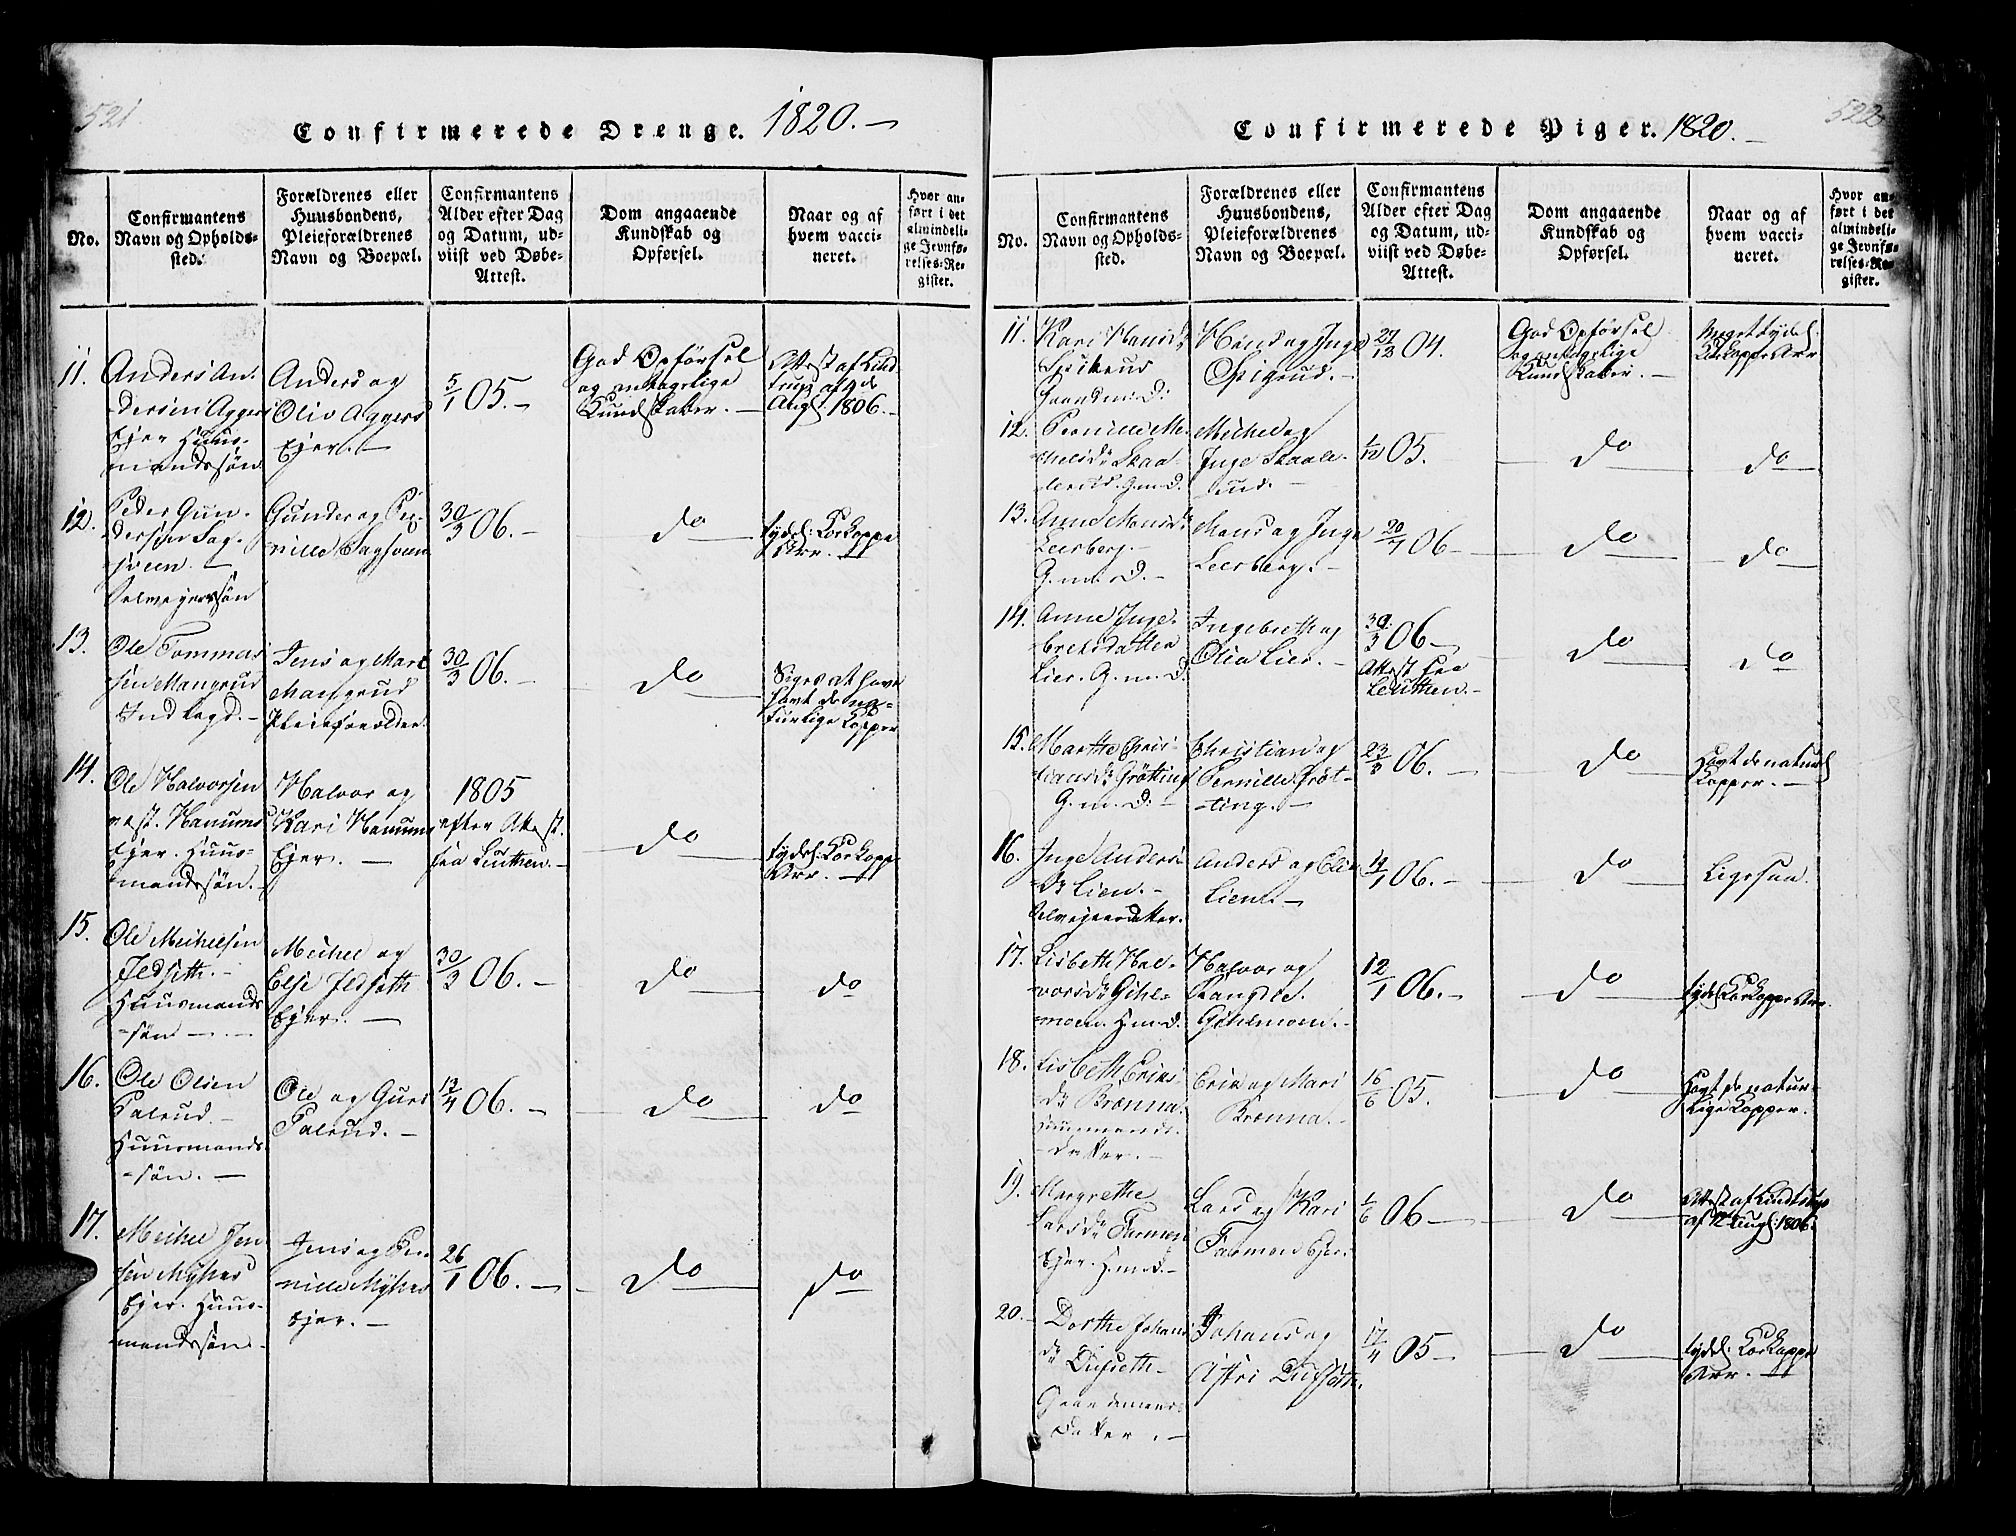 521.
Confirmerede Drenge. 1820. —
No.
Confirmantens
Navn og Opholds-
sted.
Forældrenes eller
Huusbondens,
Pleieforældrenes
Navn og Boepæl.
Confirmantens
Alder efter Dag
og Datum, ud-
viist ved Døbe-
Attest.
Dom angaaende
Kundskab og
Opførsel.
Naar og af
hvem vacci-
neret.
Hvor an-
ført i det
almindeli-
ge Jevnfø-
relses-Re-
gister.
11.
Anders An-
dersen Aggers
Ejer Huus-
mandssøn
Anders og
Oliv Aggers
Ejer. —
5/1 05. —
God Opførsel
og antagelige
Kundskaber. —
Attest af Lind
af 9de
Aug. 1806. —
12.
Peder Gun-
dersen Sag-
sveen. —
Selvejerssøn
Gunder og Per-
nille Sagsveen
30/3 06. —
do
tydel. Kokoppe
Arr. —
13.
Ole Tommes
sen Mangrud
Indlagd. —
Jens og Mari
Mangrud
Pleieforældre.
30/3 06. —
do
Siges at have
havt de na-
turlige Kopper
14.
Ole Halvorsen
vest. Hanums
Ejer. Huus-
mandssøn. —
Halvor og
Kari Hanums
Ejer. —
1805
efter Attest.
fra Leuthen. —
do
tydel. Kokopp
Arr. —
15.
Ole Mikkelsen
Jldseth. —
Huusmands
-søn —
Mikkel og
Else Jldseth
Ejer. —
30/3 06. —
do
do
16.
Ole Olsen
Palrud. —
Huusmands
-søn. —
Ole og Guri
Palrud. —
13/4 06. —
do
do
17.
Mikkel Jen
sen Myhrs
Ejer. Huus-
mandssøn. —
Jens og Per-
nille Myhrs
Ejer. —
26/1 06. —
do
do
522
Confirmerede Piger. 1820. —
No.
Confirmantens
Navn og Opholds-
sted.
Forældrenes eller
Huusbondens,
Pleieforældrenes
Navn og Boepæl.
Confirmantens
Alder efter Dag
og Datum, ud-
viist ved Døbe-
Attest.
Dom angaaende
Kundskab og
Opførsel.
Naar og af
hvem vacci-
neret.
Hvor an-
ført i det
almindeli-
ge Jevnfø-
relses-Re-
gister.
11.
Kari Hansdr
Gaardm: D:
Hans og Inge
Spigrud. —
27/12 04.
God Opførsel
og antagelige
Kundskaber. —
Meget tydel.
Kokoppe Arr
12.
Pernille Mi-
kelsdr Skaa-
lerud. G.m.D.
Mikkel og
Inge Skaale-
rud. —
1/12 05.
do
do
13.
Anne Monsdr
Leerberg. —
G.m.D. —
Mons og Inge
Leerberg. —
20/7 06 —
do
do
14.
Anne Inge-
bretsdatter
Lier. G.m.D.
Ingebreth og
Olia Lier. —
30/3 06 —
Attest fra
Leuthen. —
do
do
15.
Marthe Chris-
tiansdr Grøtting
G.m.D. —
Christian og
Pernille Grøt-
ting. —
23/3 06. —
do
Havt de naturl
Kopper. —
16.
Inge Anders-
dr Lien. —
Selvejerdatter.
Anders og Olia
Lien. —
14/1 06. —
do
Ligesaa.
17.
Lisbeth Hal-
vorsdr Gihl-
moen. H.m.D.
Halvor og
Rangdie.
Gihlmoen. —
12/1 06. —
do
tydel. Kokoppe Arr.
18.
Lisbeth Eriks-
dr Brænna.
Huusmands-
datter. —
Erik og Mari
Brænna. —
16/6 05.
do
Havt de natur-
lige Kopper.
19.
Margrethe
Larsdr Tarmon
Ejer. H.m.d. —
Lars og Kari
Tarmon Ejer.
1/6 06 —
do
Attest af Lindstrup
af 12 Aug: 1806
20. —
Dorthe Johans
dr Dufseth —
Gaardmands
Datter. —
Johans og
Astri Dufseth.
17/4 05 —
do
tydel. Kokoppe
Arr. —